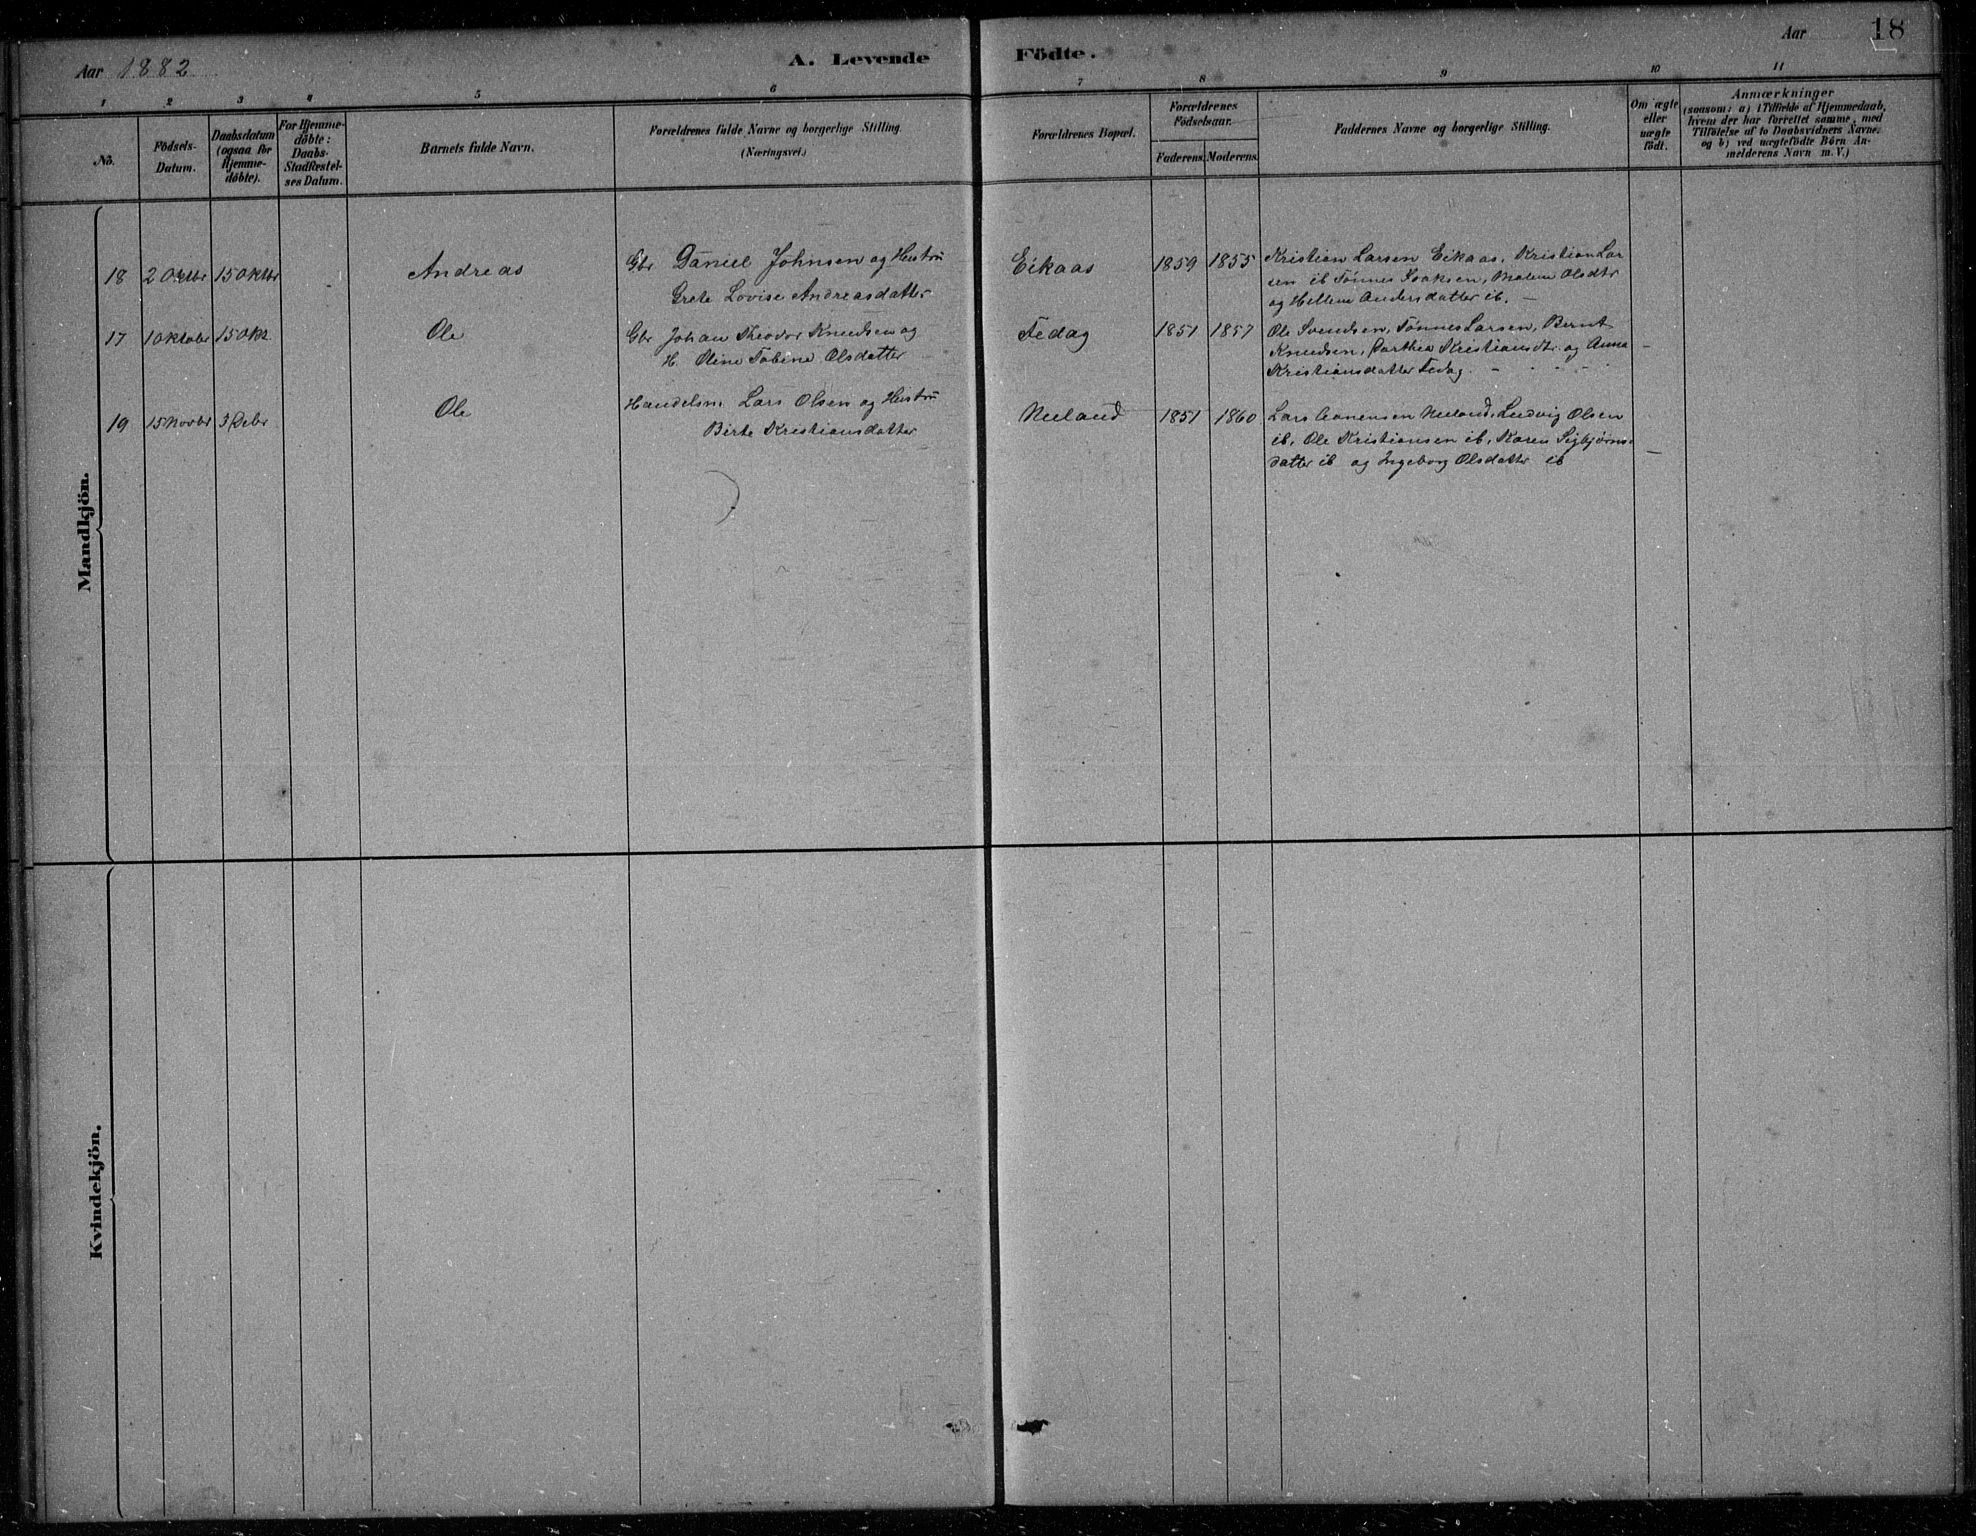 Aar 1882
A. Levende Födte.
Aar 18
1 2 3 4 5 6 7 8 9 10 11
No.
Födsels-
Datum.
Daabsdatum
(ogsaa for
Hjemme-
døbte).
For Hjemme-
døbte:
Daabs-
Stadfæstel-
ses Datum.
Barnets fulde Navn.
Forældrenes fulde Navne og borgerlige Stilling.
(Næringsvei.)
Forældrenes Bopæl.
Forældrenes
Födselsaar.
Faderens. Moderens.
Faddernes Navne og borgerlige Stilling.
Om ægte
eller
uægte
födt.
Anmærkninger
(saasom: a) i Tilfælde af Hjemmedaab,
hvem der har forrettet samme, med
Tilføielse af to Daabsvidners Navne.
og b) ved uægtefödte Börn An-
melderens Navn m. V.)
Mandkjön.
18 2 Oktbr 15 Oktbr Andreas
Gbr Daniel Johnsen og Hustru
Grete Lovise Andreasdatter
Eikaas 1859 1855
Kristian Larsen Eikaas, Kristian Lar
sen ib Tønnes Isaksen, Malene Olsdtr
og Hellene Andersdatter ib. —
17 1 Oktober 15 Ok. Ole
Gbr Johan Theodor Knudsen og
H. Oline Tobine Olsdatter
Fedag 1851 1857
Ole Svendsen, Tønnes Larsen, Bernt
Knudsen, Dorthea Kristiansdtr. og Anna
Kristiansdatter Fedag. —
19 15 Novbr 3 Debr Ole
Handelsm. Lars Olsen og Hustru
Birte Kristiansdatter
Nuland 1851 1860
Lars Aanensen Nuland, Ludvig Olsen
ib, Ole Kristiansen ib, Karen Sigbjørns-
datter ib og Ingeborg Olsdatter ib —
Kvindekjön.